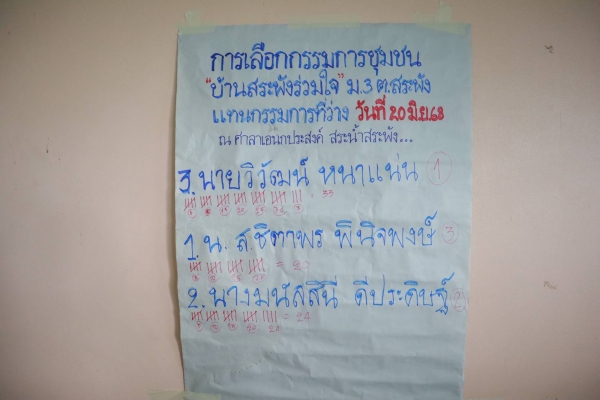 การเลือกกรรมการชุมชน
"บ้านสระพังร่วมใจ" ม.3 ต.สระพัง
แทนกรรมการที่ว่าง วันที่ 20 มิ.ย. 68
ณ ศาลาเอนกประสงค์ สระน้ำสระพัง...
3. นายวิวัฒน์ หนาแน่น 1
33
1. น.ส. ชิตาพร พินิจพงษ์ 3
2. นางมนัสสินี ดีประดิษฐ์ 2
= 24